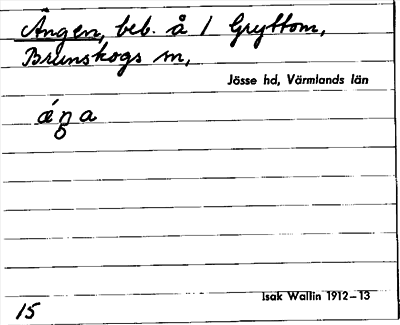 Ängen, beb. å 1 Gryttom,
Brunskogs sn,
Jösse hd, Värmlands län
Isak Wallin 1912–13
15